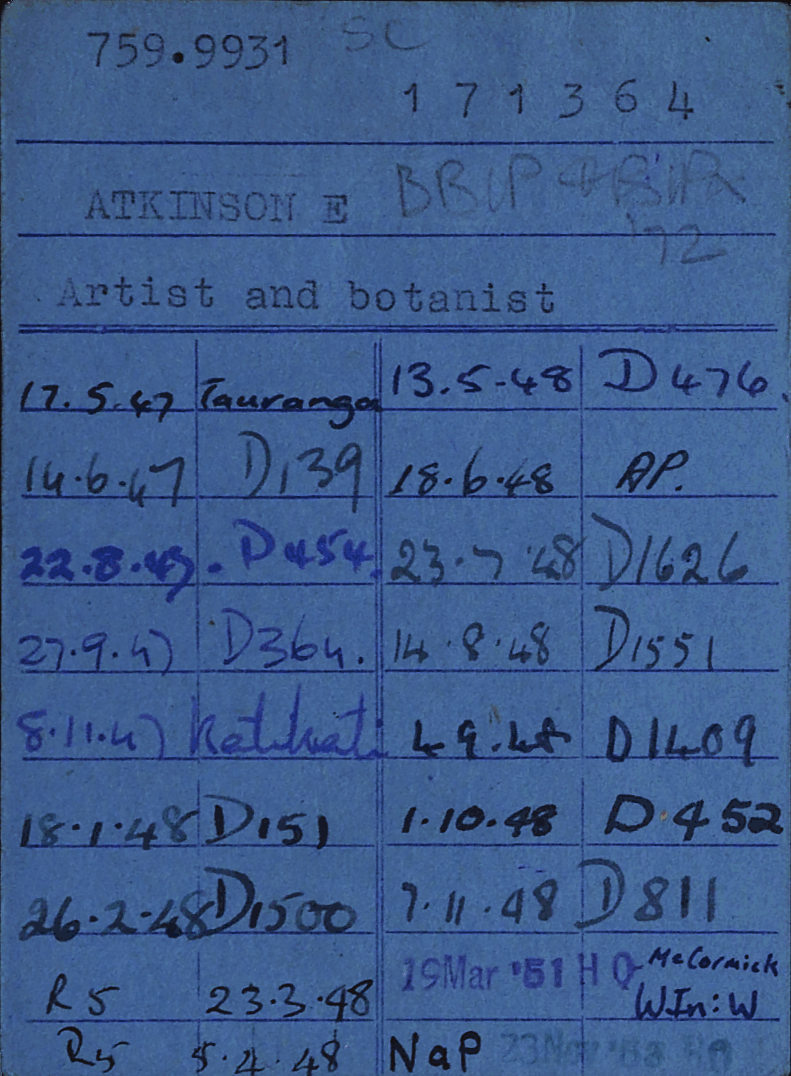 759.9931 SC
171364
ATKINSON E
'72
Artist and botanist
17.5.47 Tauranga
14.6.47 D139
22.8.47. D454.
27.9.47 D364.
8.11.47 Katikati
18.1.48 D151
26.2.48 D1500
R5 23.3.48
R5 5.4.48
13.5.48 D476.
18.6.48 AP.
23.7.48 D1626
14.8.48 D1551
4 9.48 D1409
1.10.48 D.452
7.11.48 D811
19Mar '51 H Q McCormick
WIn: W
NaP